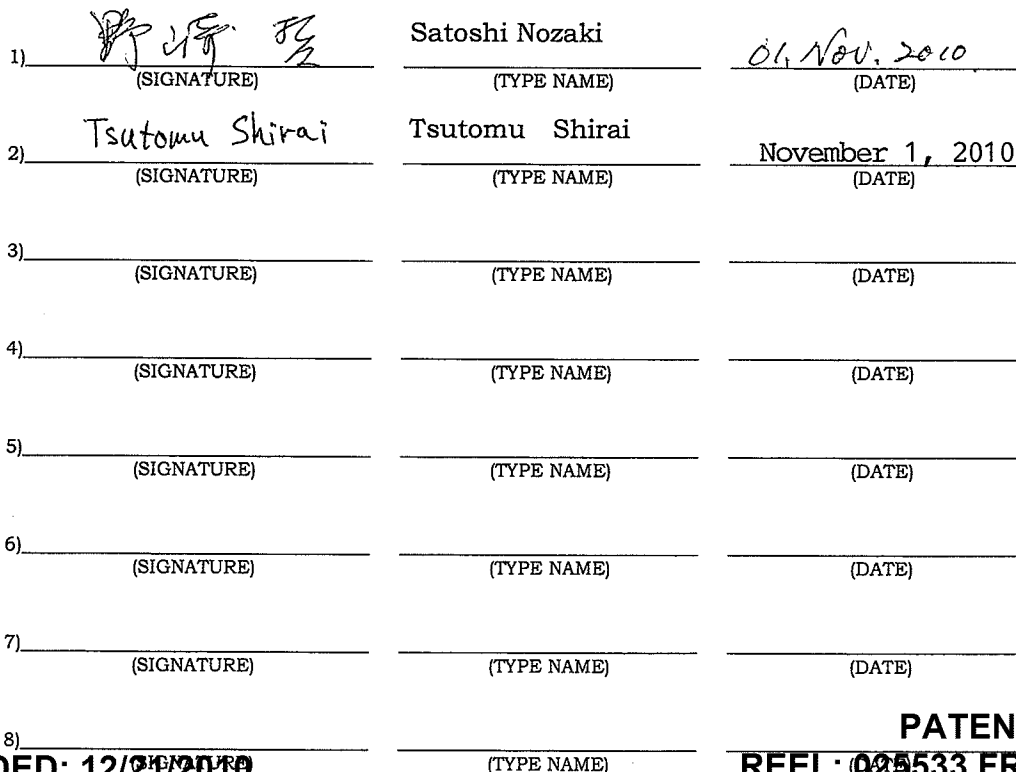 野崎 Satoshi Nozaki 01, Nov. 2010
1)
(SIGNATURE) (TYPE NAME) (DATE)
Tsutomu Shirai Tsutomu Shirai November 1, 2010
2)
(SIGNATURE) (TYPE NAME) (DATE)
3)
(SIGNATURE) (TYPE NAME) (DATE)
4)
(SIGNATURE) (TYPE NAME) (DATE)
5)
(SIGNATURE) (TYPE NAME) (DATE)
6)
(SIGNATURE) (TYPE NAME) (DATE)
7)
(SIGNATURE) (TYPE NAME) (DATE)
PATEN
8)
(SIGNATURE) (TYPE NAME) (DATE)
DED: 12/21/2010 REEL: 025533 FR